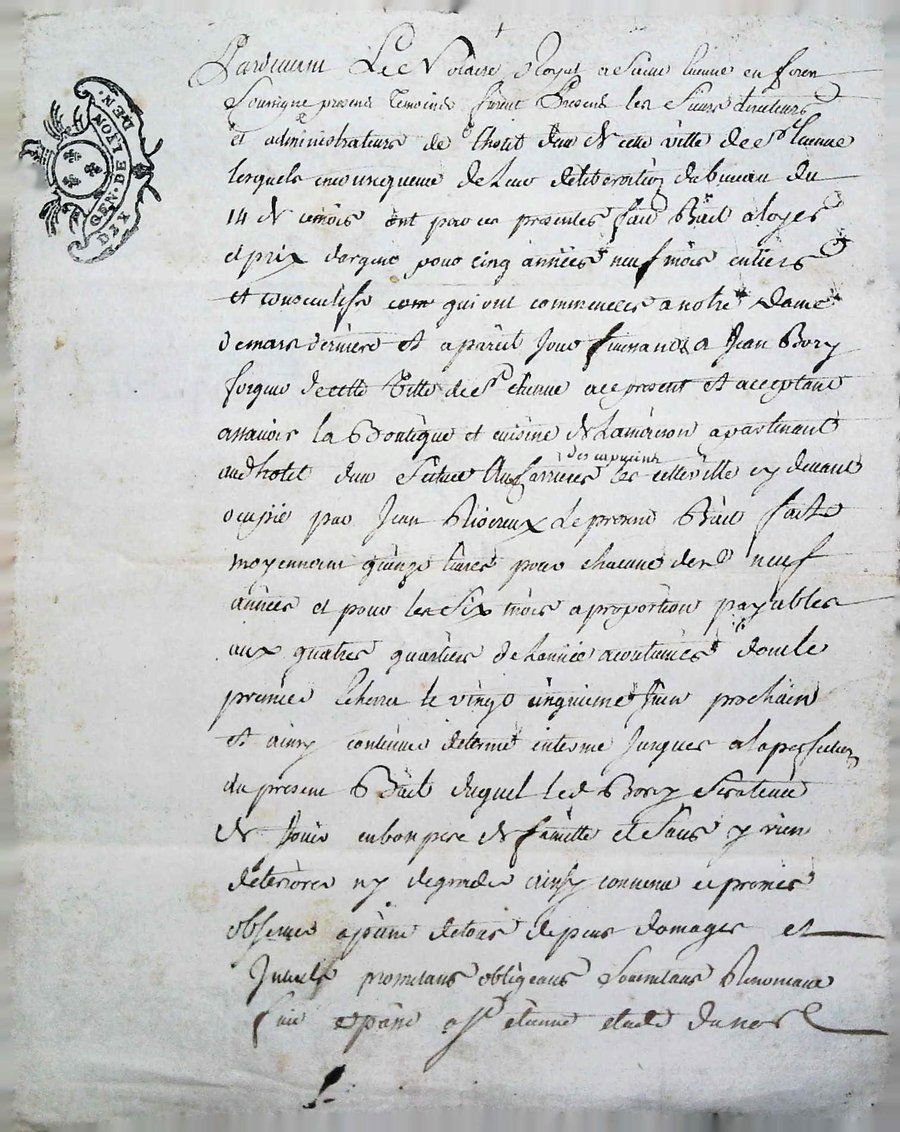 GEN. DE LYON
DIX DEN.
Pardevant Le Notaire Royal a Saint Etienne en forez
Soussigné presens temoins furent Presens les Sieurs directeurs
et administrateurs de l'hotel dieu de cette ville de St Etienne
lesquels en consequence de leur deliberation du bureau du
14 de ce mois ont par ces presentes fait Bail a loyer
et prix d'argent pour cinq années neuf mois entiers
et consecutifs qui ont commencées a notre dame
de mars derniere et a pareil jour finissant a Jean Bory
forgeur de cette Ville de St etienne cy present et acceptant
assavoir la Boutique et cuisine de la maison apartenant
audt hotel dieu Scituée
des capucins
les cette ville cy devant
occupée par Jean le present Bail fait
moyennant quinze livres pour chacune desd neuf
années et pour les Six mois a proportion payables
aux quatres quartiers de l'année acoutumés dont le
premier echerra le vingt cinquieme Juin prochain
et ainsy continuer de terme en terme Jusques a la perfection
du present Bail duquel led Bory Sera tenu
de Jouir en bon pere de famille et Sans y rien
deteriorer ny degrader ainsy convenu et promis
observer a peine de tous depens domages et
Interets promettans obligeans Soumettans Renonceant
fait et passé a St etienne etude du nore